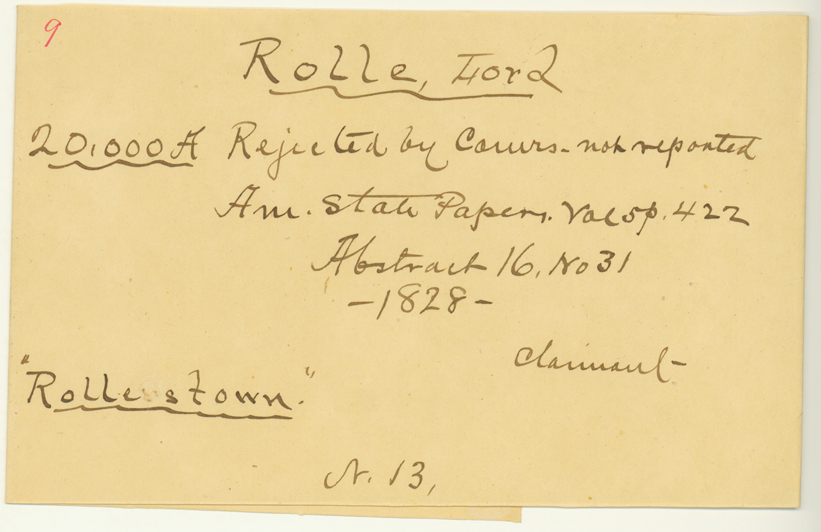 9
Rolle, Lord
20,000 A Rejected by Comrs - not reported
Am. State Papers. Vol 5 p. 422
Abstract 16, No 31
- 1828 -
Claimant -
"Rolles town."
N. 13,